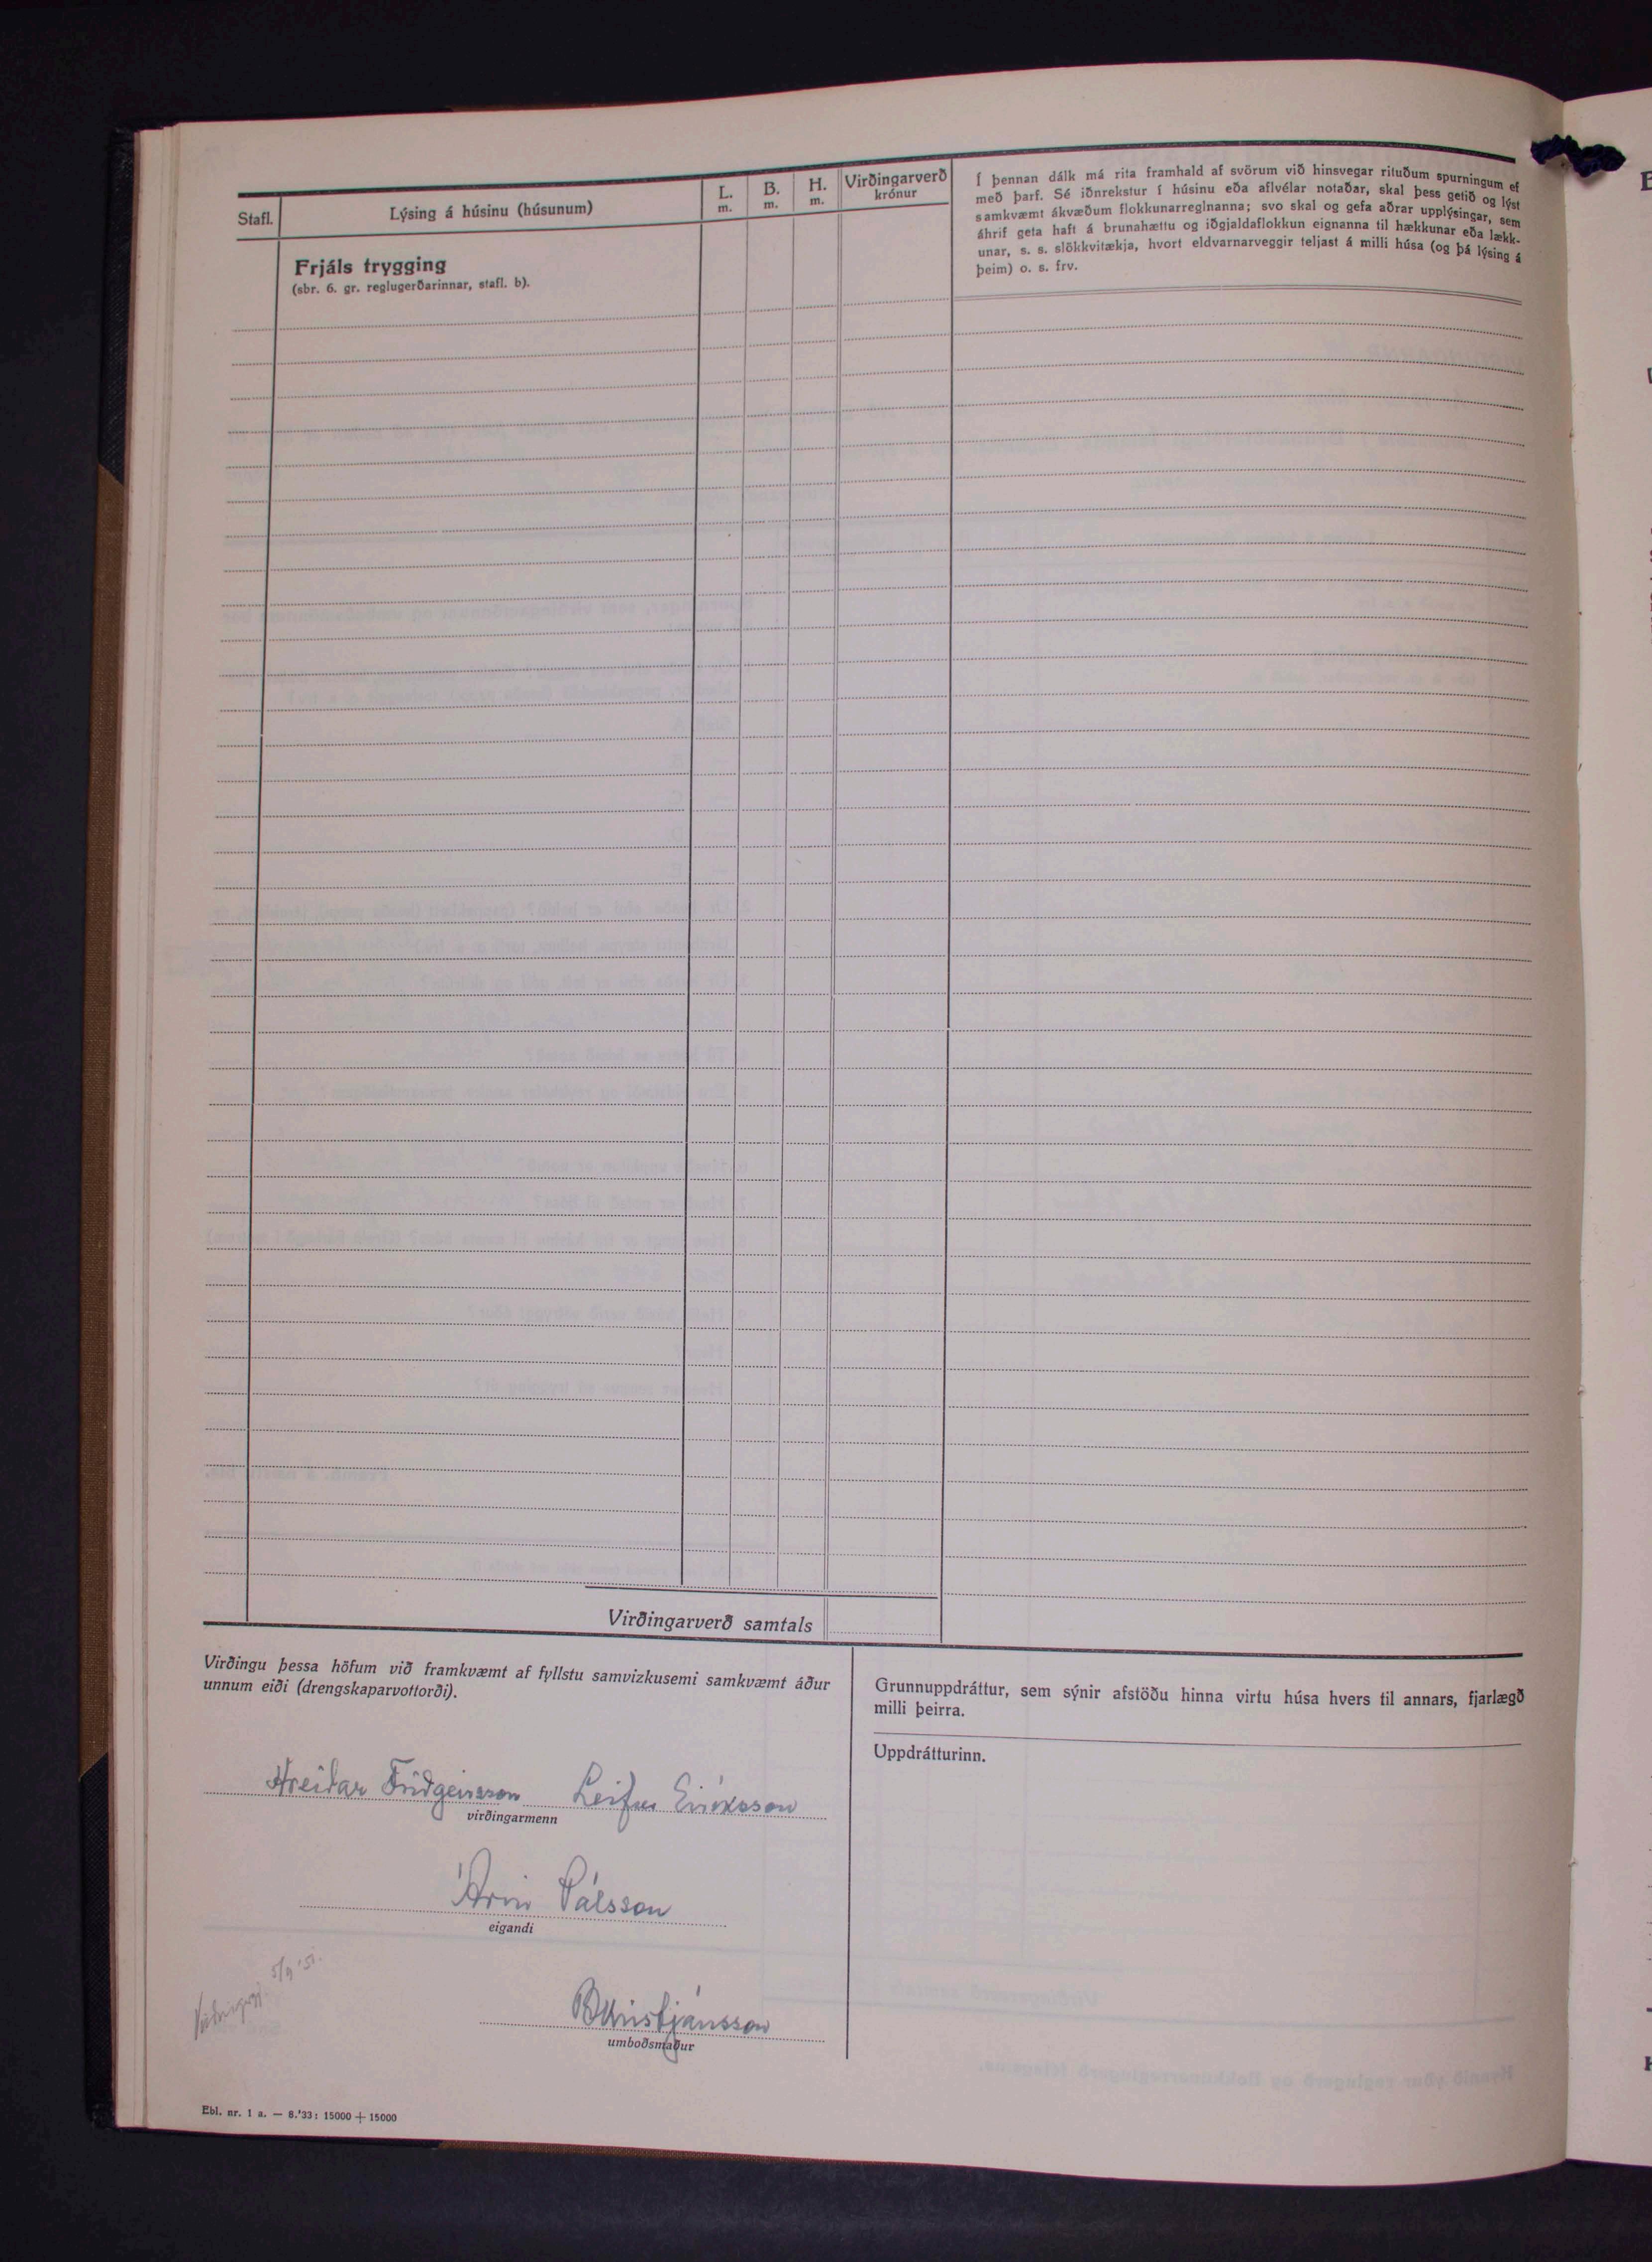 Stafl.
Lýsing á húsinu (húsunum)
L.
m.
B.
m.
H.
m.
Virðingarverð
krónur
Frjáls trygging
(sbr. 6. gr. reglugerðarinnar, stafl. b).
Í þennan dálk má rita framhald af svörum við hinsvegar rituðum spurningum ef
með þarf. Sé iðnrekstur í húsinu eða aflvélar notaðar, skal þess getið og lýst
samkvæmt ákvæðum flokkunarreglnanna; svo skal og gefa aðrar upplýsingar, sem
áhrif geta haft á brunahættu og iðgjaldaflokkun eignanna til hækkunar eða lækk-
unar, s. s. slökkvitækja, hvort eldvarnarveggir teljast á milli húsa (og þá lýsing á
þeim) o. s. frv.
Virðingarverð samtals
Virðingu þessa höfum við framkvæmt af fyllstu samvizkusemi samkvæmt áður
unnum eiði (drengskaparvottorði).
Hreiðar Friðgeirsson Leifur Eiríksson
virðingarmenn
Árni Pálsson
eigandi
BKristjánsson
umboðsmaður
5/9 '51.
Grunnuppdráttur, sem sýnir afstöðu hinna virtu húsa hvers til annars, fjarlægð
milli þeirra.
Uppdrátturinn.
Ebl. nr. 1 a. — 8.'33: 15000 + 15000